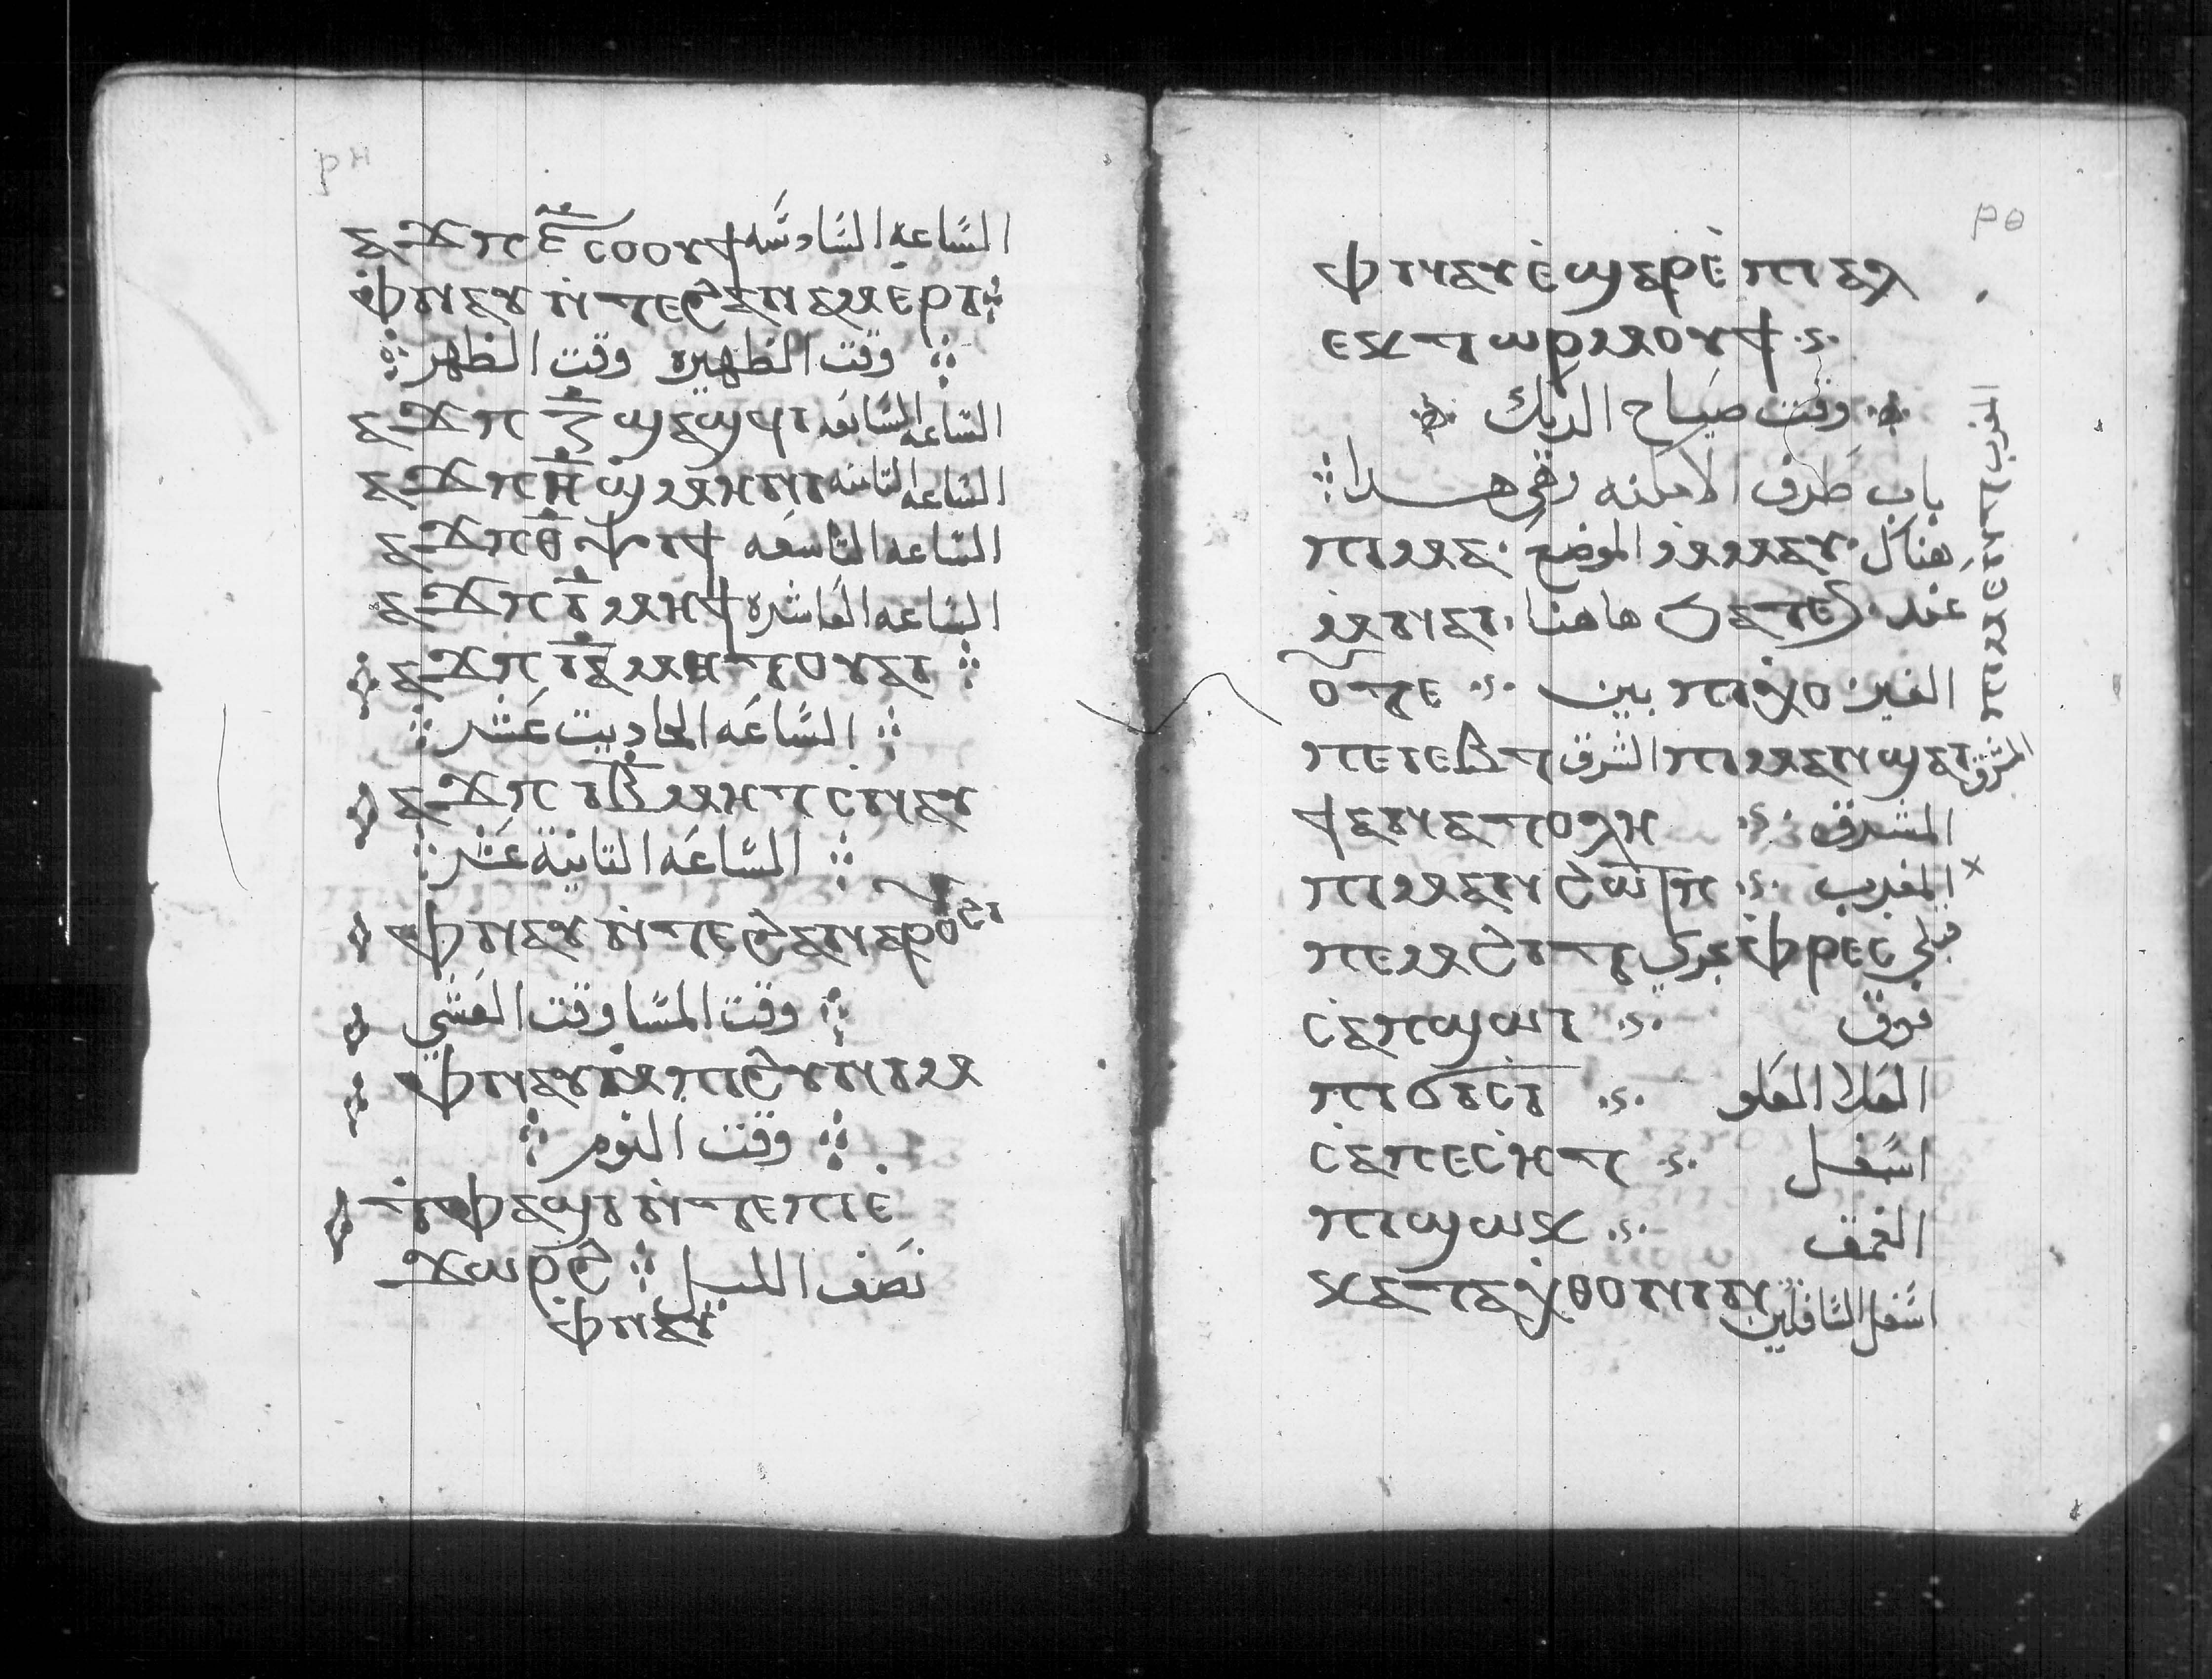 ⲣⲏ
ⲁϫⲡ ⲋ̅ ⲥⲟⲟⲩϯ السَّاعه السَّادسَه
ⲫⲛⲁⲩ ⲛ̀ⲧⲉϩⲁⲛⲁⲙⲉⲣⲓ
وقت الظهيره وقت الظهر
ⲁϫⲡ ⲍ̅ ϣⲁϣϥⲓ السَّاعه السَّابعه
ⲁϫⲡ ⲏ̅ ϣⲙⲏⲛⲓ السَّاعه التَامنه
ⲁϫⲡ ⲑ̅ ⲯⲓϯ السَّاعه التَاسعَه
ⲁϫⲡ ⲓ̅ ⲙⲏϯ السَّاعه العَاشره
ⲁϫⲡ ⲓⲁ̅ ⲙⲏⲧⲟⲩⲁⲓ
السَّاعَه الحاديت عَشر
ⲁϫⲡ ⲓⲃ̅ ⲙⲏⲧⲥⲛⲁⲩ
السَّاعَه التانية عَشر
ⲫⲛⲁⲩ ⲛ̀ⲧⲉϩⲁⲛⲁⲣⲟⲩϩⲓ
وقت المسَّا وقت العَشي
ⲫⲛⲁⲩ ⲙ̀ⲡⲓϩⲩⲛⲓⲙ
وقت النوم
ⲧ̀ⲫⲁϣⲓ ⲛ̀ⲧⲉⲡⲓⲉ̀
ϫⲱⲣϩ نصَف الليل
ⲫⲛⲁⲩ
ⲣⲑ
ⲫⲛⲁⲩ ⲉ̀ϣⲁⲣⲉ̀ ⲡⲓⲁⲗ
ⲉⲕⲧⲱⲣⲙⲟⲩϯ
وقت صيَاح الديك
باب طَرف الامكنه وهي هدا
ⲡⲓⲙⲁ الموضع ⲙⲙⲁⲩ هناك
ⲙ̀ⲛⲁⲓ هاهنا ϧⲁⲧⲉⲛ عند
ⲟⲩⲧⲉ بين ⲡⲓⲭⲟ الغير
ⲡⲉⲓⲉⲃⲧ الشرق ⲡⲓⲙⲁⲛϣⲁⲓ المشرق
ϯⲁⲛⲁⲧⲟⲗⲏ المشرق
ⲡⲓⲙⲁⲛϩⲱⲧⲡ المغرب
ⲡⲉⲙϩⲓⲧ بحري ⲫⲣⲏⲥ قبلي
ⲥⲁⲡϣⲱⲓ فوق
ⲡⲓϭⲓⲥⲓ العَلا العَلو
ⲥⲁⲡⲉⲥⲏⲧ اسَفل
ⲡⲓϣⲱⲕ الغمق
ⲕⲁⲧⲁⲭⲑⲟⲛⲓⲛ اسَفل السَّافلين